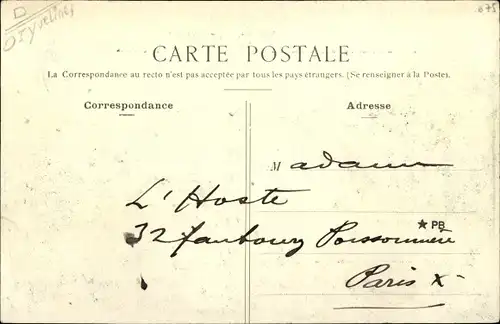 D
075
Yvelines
CARTE POSTALE
La Correspondance au recto n'est pas acceptée par tous les pays étrangers. (Se renseigner à la Poste).
Correspondance
Adresse
Madame
L'Hoste
32 faubourg Poissonnière
★ PB
Paris X